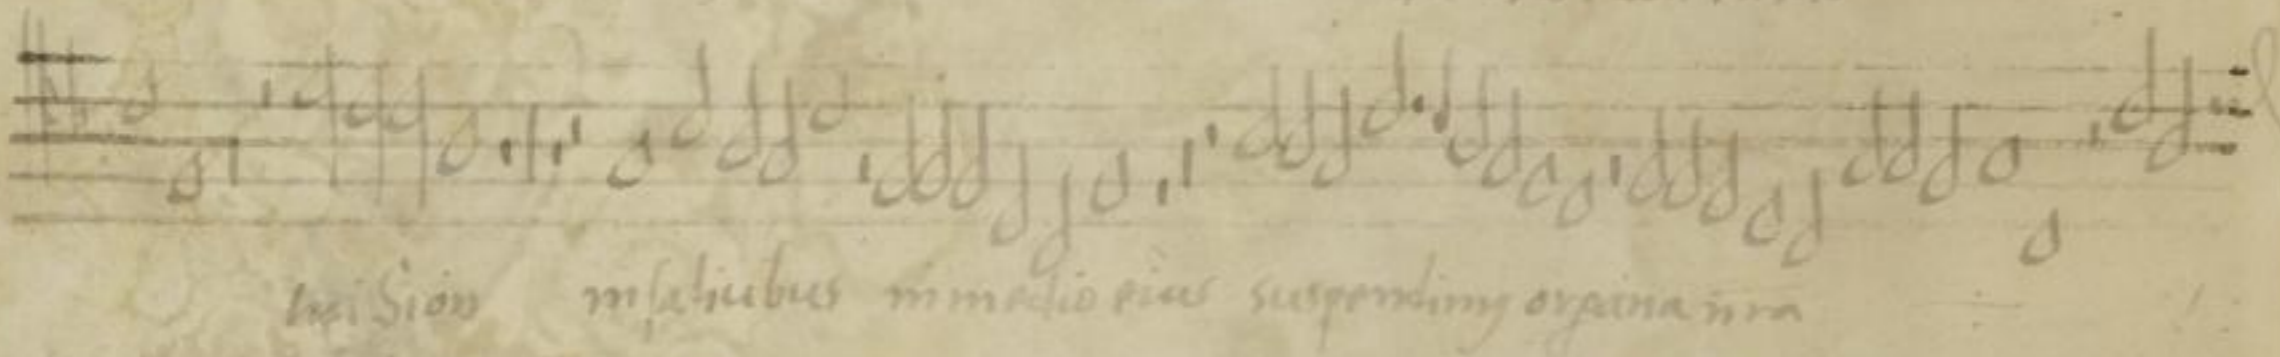 tui Sion in salicubus in medio eius suspendimus organa nra